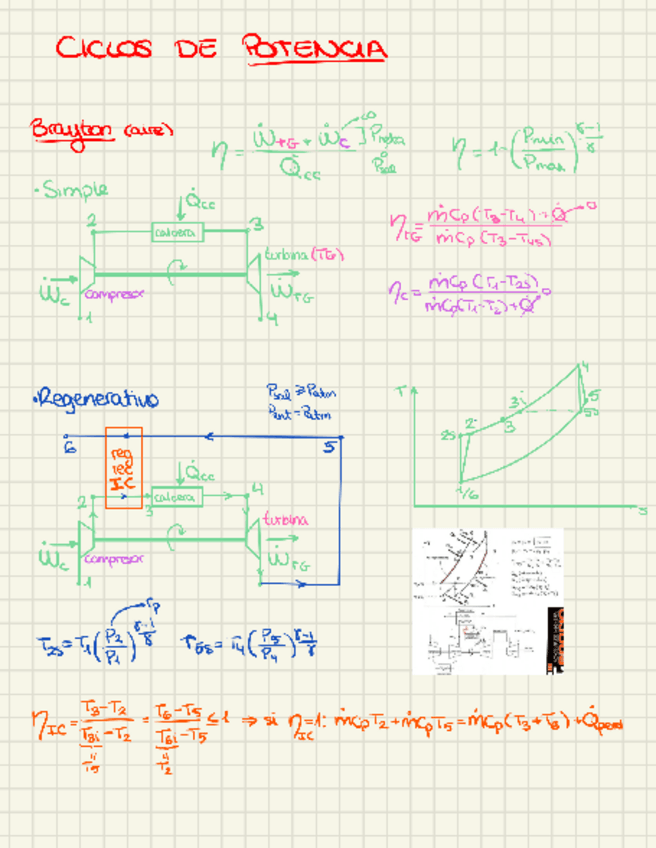 CICLOS DE POTENCIA
Brayton (aire)
η = (Ẇ_TG + Ẇ_C^<0) / Q̇_cc ] P_neta
η = 1 - (P_min / P_max)^((γ-1)/γ)
· Simple
Q̇_cc
2
caldera
3
turbina (TG)
Ẇ_C
compresor
Ẇ_TG
1
4
η_TG = (ṁCp (T3-T4) + Q̇→0) / (ṁCp (T3-T4s))
η_c = (ṁCp (T1-T2s)) / (ṁCp(T1-T2) + Q̇→0)
· Regenerativo
P_sal ≥ P_atm
P_ent = P_atm
6
5
reg
rec
IC
Q̇_cc
2
3
caldera
4
turbina
Ẇ_C
compresor
Ẇ_TG
1
T
4
3i
5
2s
2
3
5s
1/6
s
T2s = T1 (P2/P1)^((γ-1)/γ)
rp
T5s = T4 (P5/P4)^((γ-1)/γ)
η_IC = (T3-T2) / (T3i-T2) = (T6-T5) / (T6i-T5) ≤ 1 ⇒ si η_IC = 1: ṁCpT2 + ṁCpT5 = ṁCp (T3+T6) + Q̇perd
T5
T2